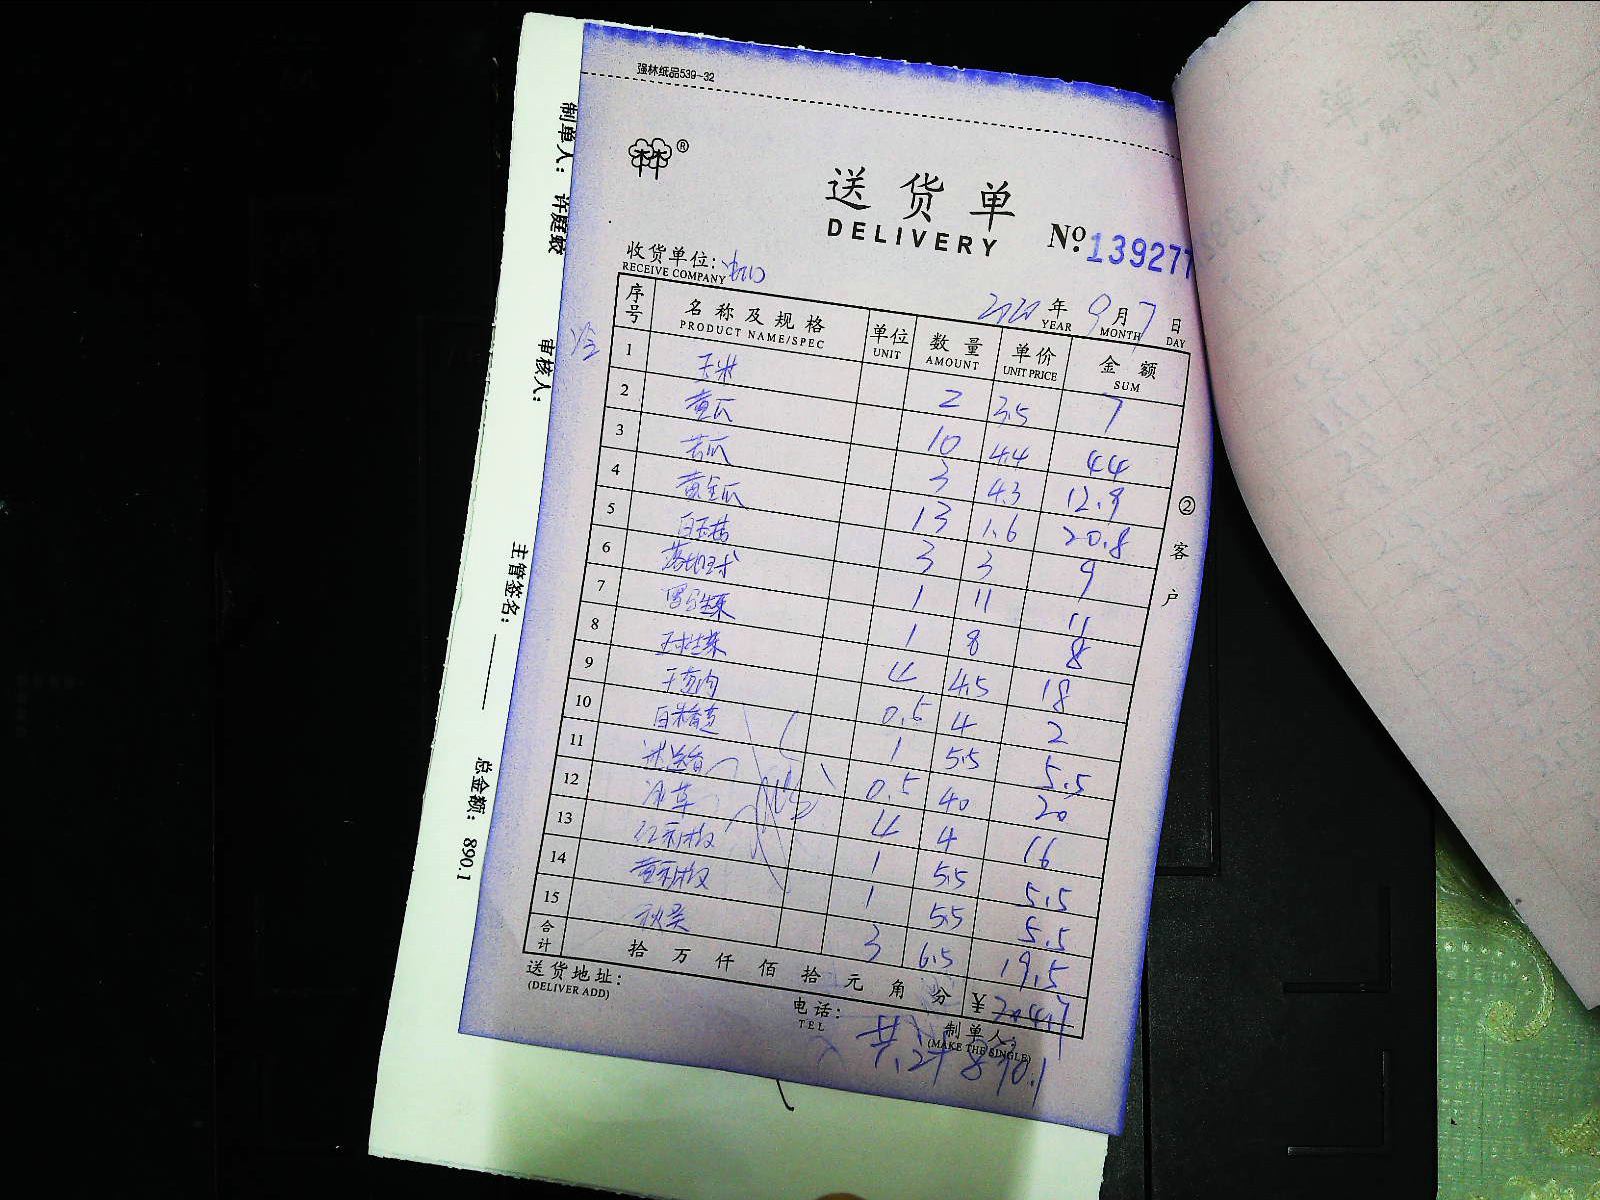 强林纸品539-32
林林®
送货单
DELIVERY
№ 139277
收货单位:
RECEIVE COMPANY
2020 年 9 月 7 日
YEAR MONTH DAY
序号 名称及规格 单位 数量 单价 金额
PRODUCT NAME/SPEC UNIT AMOUNT UNIT PRICE SUM
冷
1 玉米 2 3.5 7
2 黄瓜 10 4.4 44
3 苦瓜 3 4.3 12.9
4 黄金瓜 13 1.6 20.8
5 白玉菇 3 3 9
6 1 11 11
7 1 8 8
8 4 4.5 18
9 0.5 4 2
10 1 5.5 5.5
11 0.5 40 20
12 4 4 16
13 红彩椒 1 5.5 5.5
14 黄彩椒 1 5.5 5.5
15 秋葵 3 6.5 19.5
合计 拾 万 仟 佰 拾 元 角 分 ¥204.7
送货地址:
(DELIVER ADD)
电话:
TEL
制单人:
(MAKE THE SINGLE)
共计 890.1
②客户
制单人: 许庭蛟 审核人: 主管签名: 总金额: 890.1